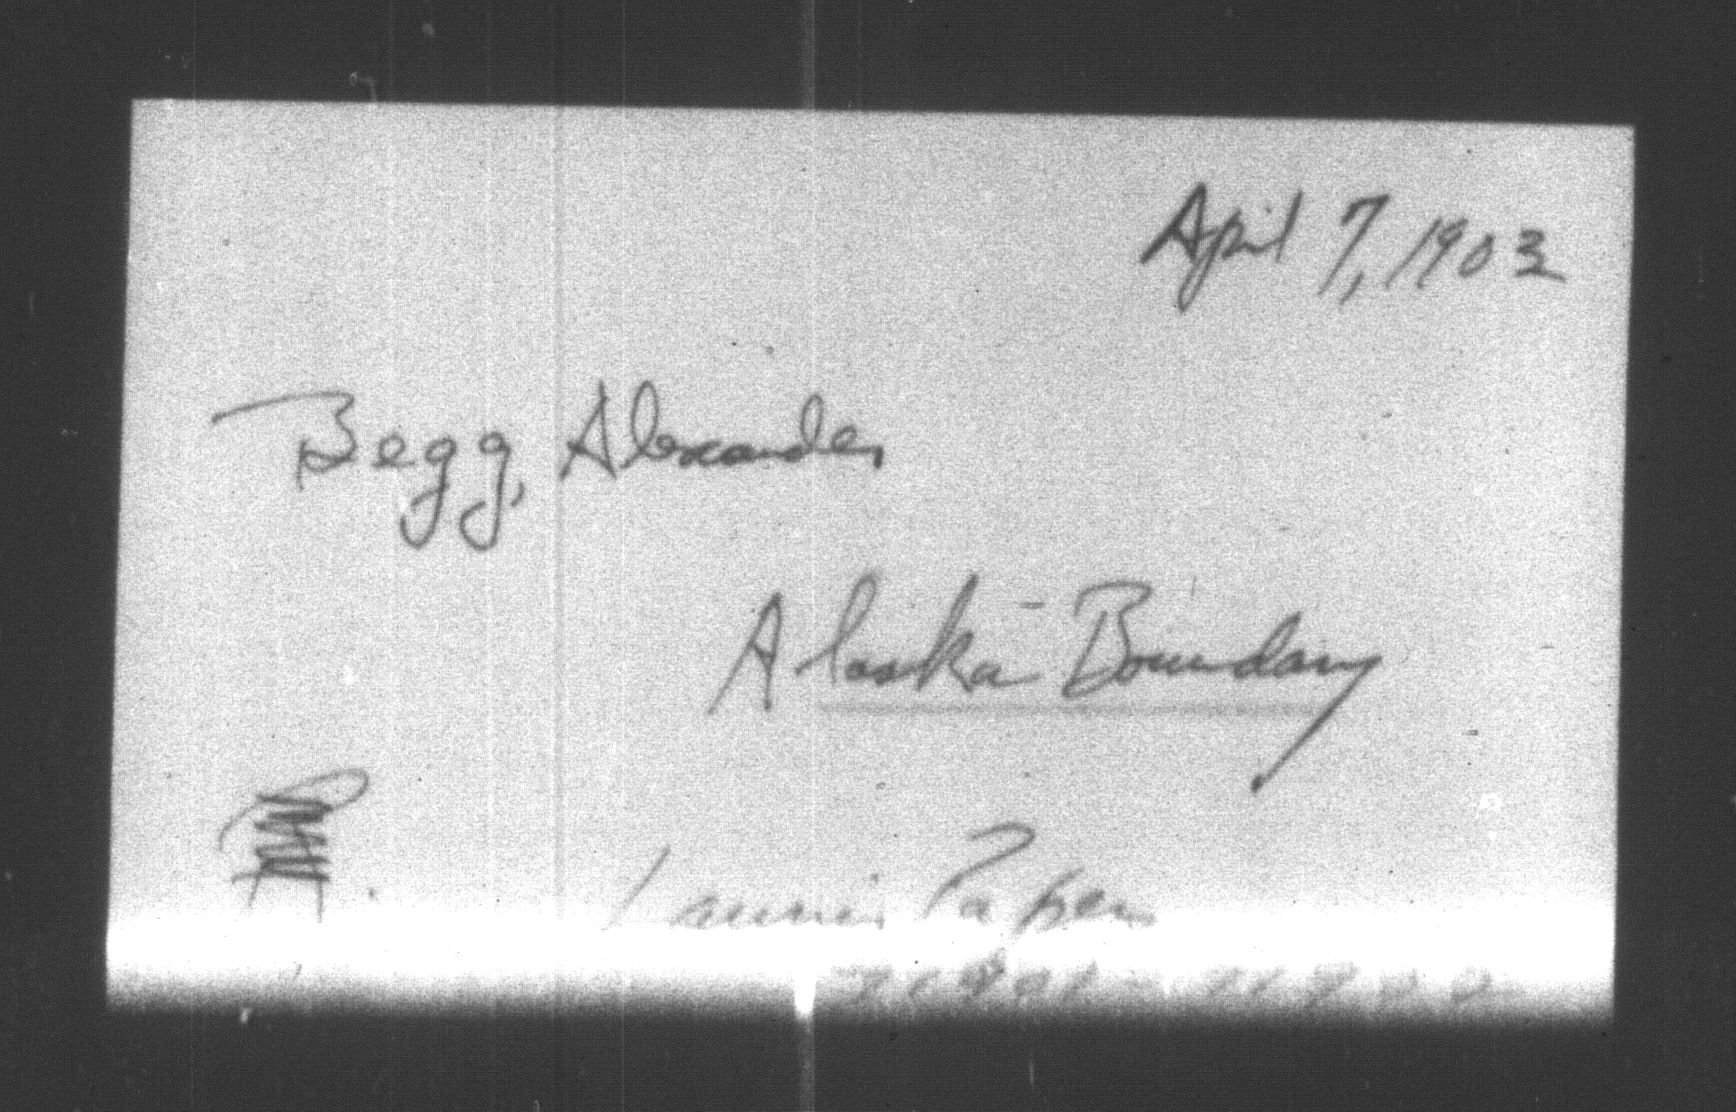 April 7, 1903
Begg, Alexander
Alaska Boundary
Laurier Papers